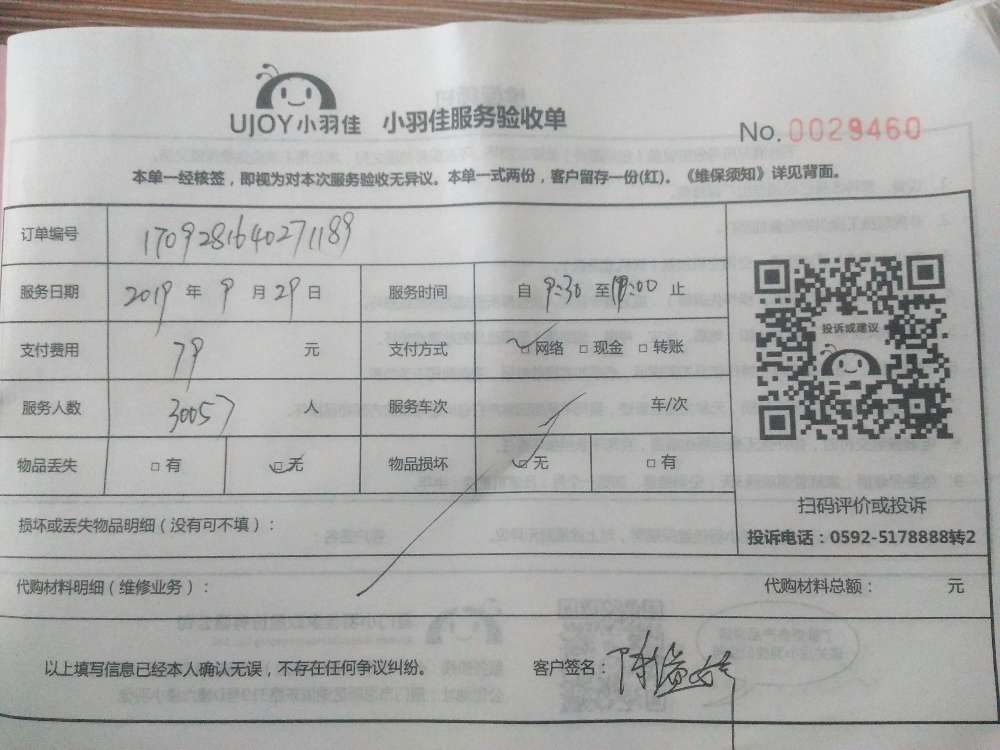 UJOY小羽佳 小羽佳服务验收单
No. 0029460
本单一经核签，即视为对本次服务验收无异议。本单一式两份，客户留存一份(红)。《维保须知》详见背面。
订单编号 1709281640271189
服务日期 2019 年 9 月 29 日 服务时间 自 9:30 至 18:00 止
支付费用 79 元 支付方式 □网络 □现金 □转账
服务人数 30057 人 服务车次 车/次
物品丢失 □有 □无 物品损坏 □无 □有
投诉或建议
扫码评价或投诉
投诉电话：0592-5178888转2
损坏或丢失物品明细（没有可不填）：
代购材料明细（维修业务）： 代购材料总额： 元
以上填写信息已经本人确认无误，不存在任何争议纠纷。 客户签名：